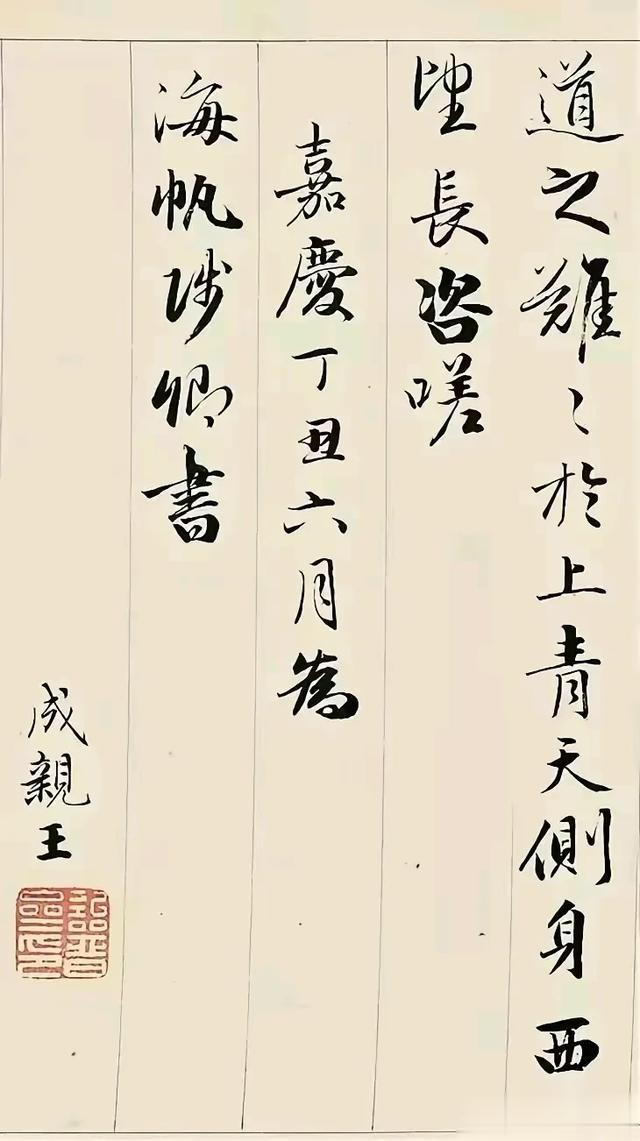 道之難〻於上青天側身西
望長咨嗟
嘉慶丁丑六月為
海帆陟卿書
成親王
詒晉齋印